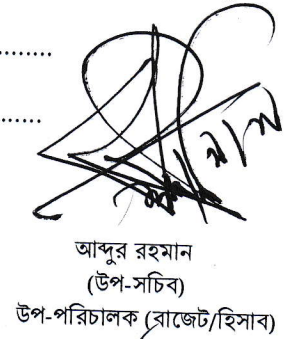 আব্দুর রহমান
(উপ-সচিব)
উপ-পরিচালক (বাজেট/হিসাব)